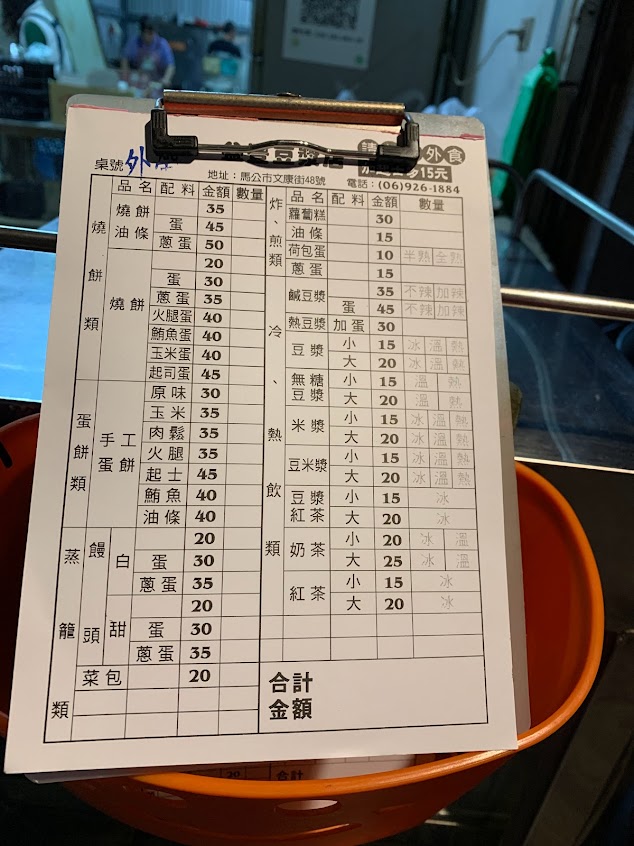 外
豆漿店
外食
15元
桌號 外
地址：馬公市文康街48號 電話：(06)926-1884
品名 配料 金額 數量
燒餅類
燒餅油條 35
蛋 45
蔥蛋 50
燒餅 20
蛋 30
蔥蛋 35
火腿蛋 40
鮪魚蛋 40
玉米蛋 40
起司蛋 45
蛋餅類
手工蛋餅 原味 30
玉米 35
肉鬆 35
火腿 35
起士 45
鮪魚 40
油條 40
蒸籠類
饅頭 白 20
蛋 30
蔥蛋 35
甜 20
蛋 30
蔥蛋 35
菜包 20
品名 配料 金額 數量
炸、煎類
蘿蔔糕 30
油條 15
荷包蛋 10 半熟 全熟
蔥蛋 15
冷、熱飲類
鹹豆漿 35 不辣 加辣
蛋 45 不辣 加辣
熱豆漿 加蛋 30
豆漿 小 15 冰 溫 熱
大 20 冰 溫 熱
無糖豆漿 小 15 溫 熱
大 20 溫 熱
米漿 小 15 冰 溫 熱
大 20 冰 溫 熱
豆米漿 小 15 冰 溫 熱
大 20 冰 溫 熱
豆漿紅茶 小 15 冰
大 20 冰
奶茶 小 20 冰 溫
大 25 冰 溫
紅茶 小 15 冰
大 20 冰
合計金額
20 合計